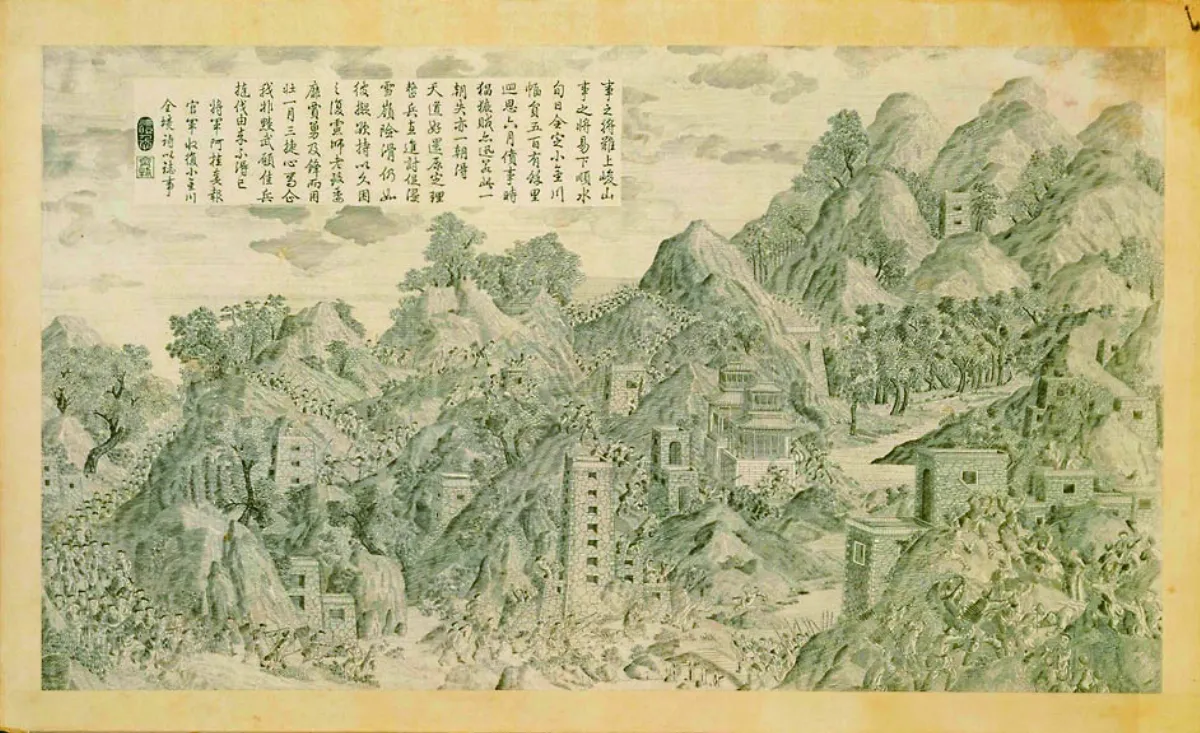 事之將難上峻山
事之將易下順水
旬日全定小金川
幅員五百有餘里
迴思六月僨事時
猖獗賊亦迅若此一
朝失亦一朝得
天道好還原定理
誓兵直進討促浸
雪嶺險滑仍如
彼擬歇持以久困
之復慮師老致委
靡賞勇及鋒而用
壯一月三捷心合
我非黷武願佳兵
撻伐由來不得已
將軍阿桂奏報
官軍收復小金川
全境詩以誌事